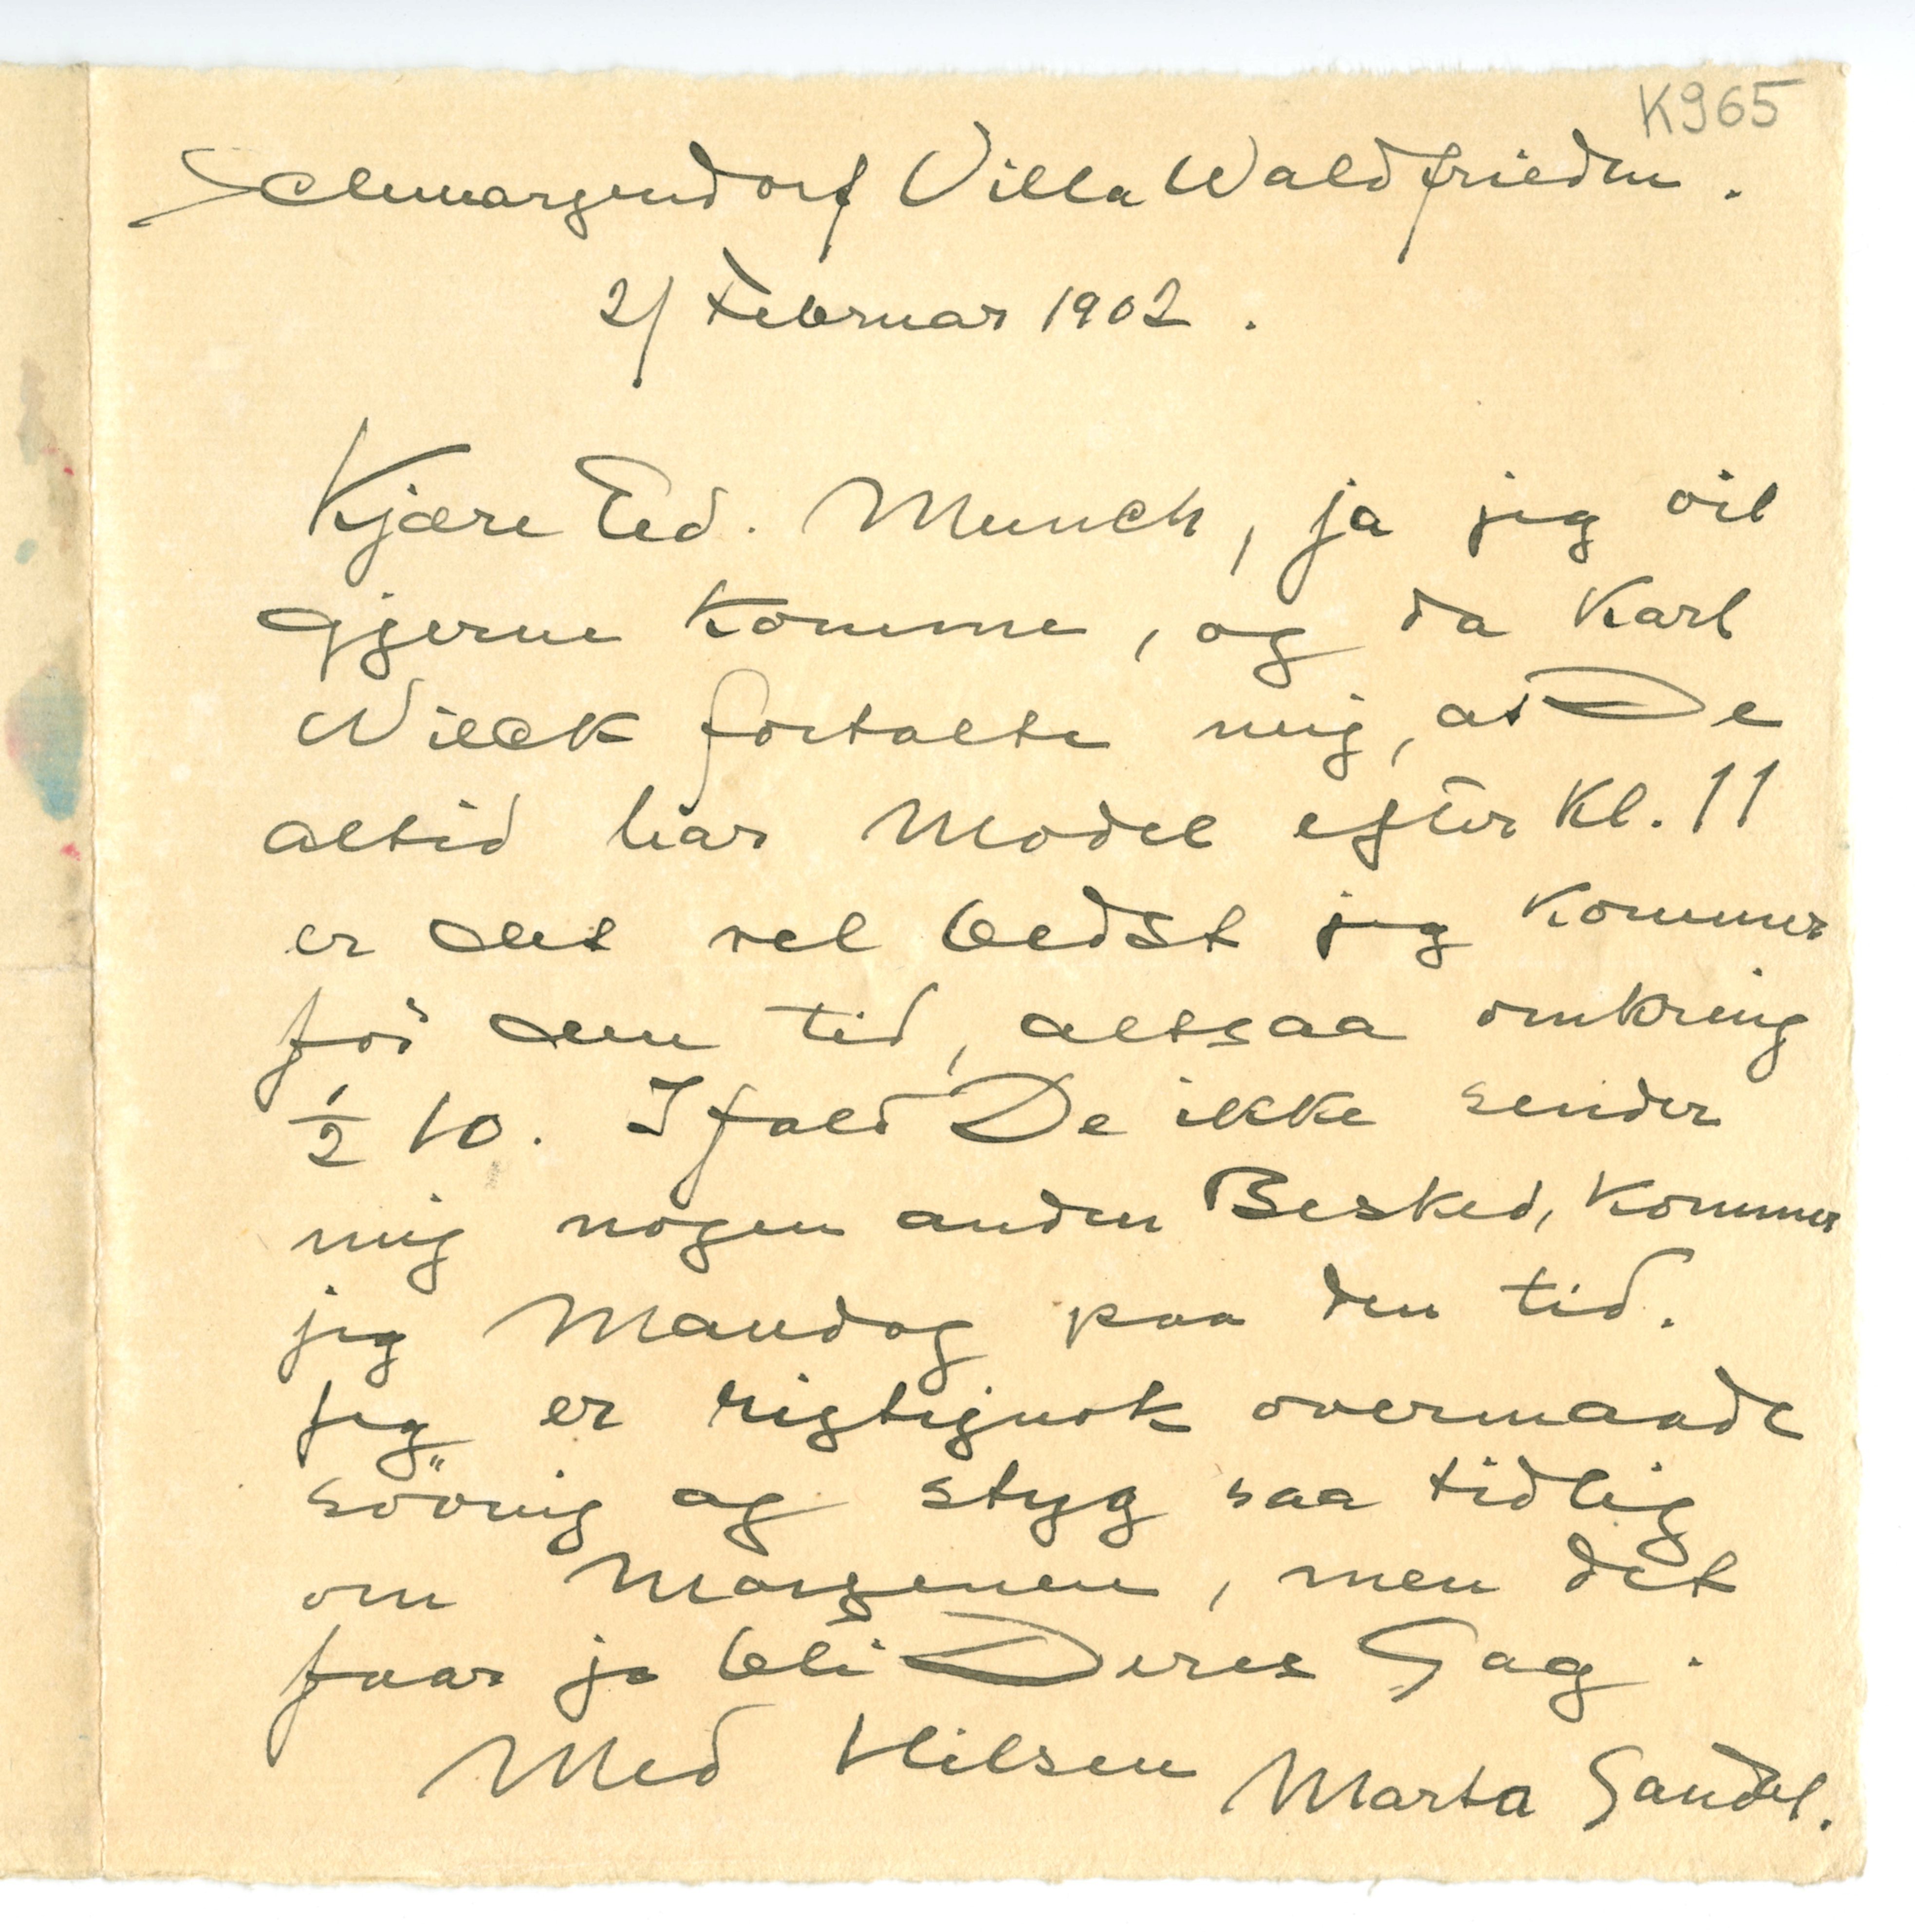 K965
Schmargendorf Villa Waldfrieden.
2/ Februar 1902.
Kjære Ed. Munch, ja jeg vil
gjerne komme, og da Karl
Wilck fortalte mig, at De
altid har Model efter Kl. 11
er det vel bedst jeg kommer
för den tid, altsaa omkring
1/2 10. Ifald De ikke sender
mig nogen anden Besked, kommer
jeg Mandag paa den tid.
Jeg er rigtignok overmaade
sövnig og styg saa tidlig
om Morgenen, men det
faar jo bli Deres Sag.
Med Hilsen Marta Sandal.